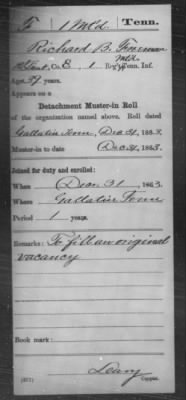 F 1 Mt'd Tenn.
Richard B. Freeman
Co. E, 1 Mt'd Reg't Tenn. Inf.
Age 37 years.
Appears on a
Detachment Muster-in Roll
of the organization named above. Roll dated
Gallatin Tenn, Dec 31, 1863.
Muster-in to date Dec 31, 1863.
Joined for duty and enrolled:
When Decr 31, 1863.
Where Gallatin Tenn
Period 1 years.
Remarks: To fill an original
vacancy
Book mark:
Copyist.